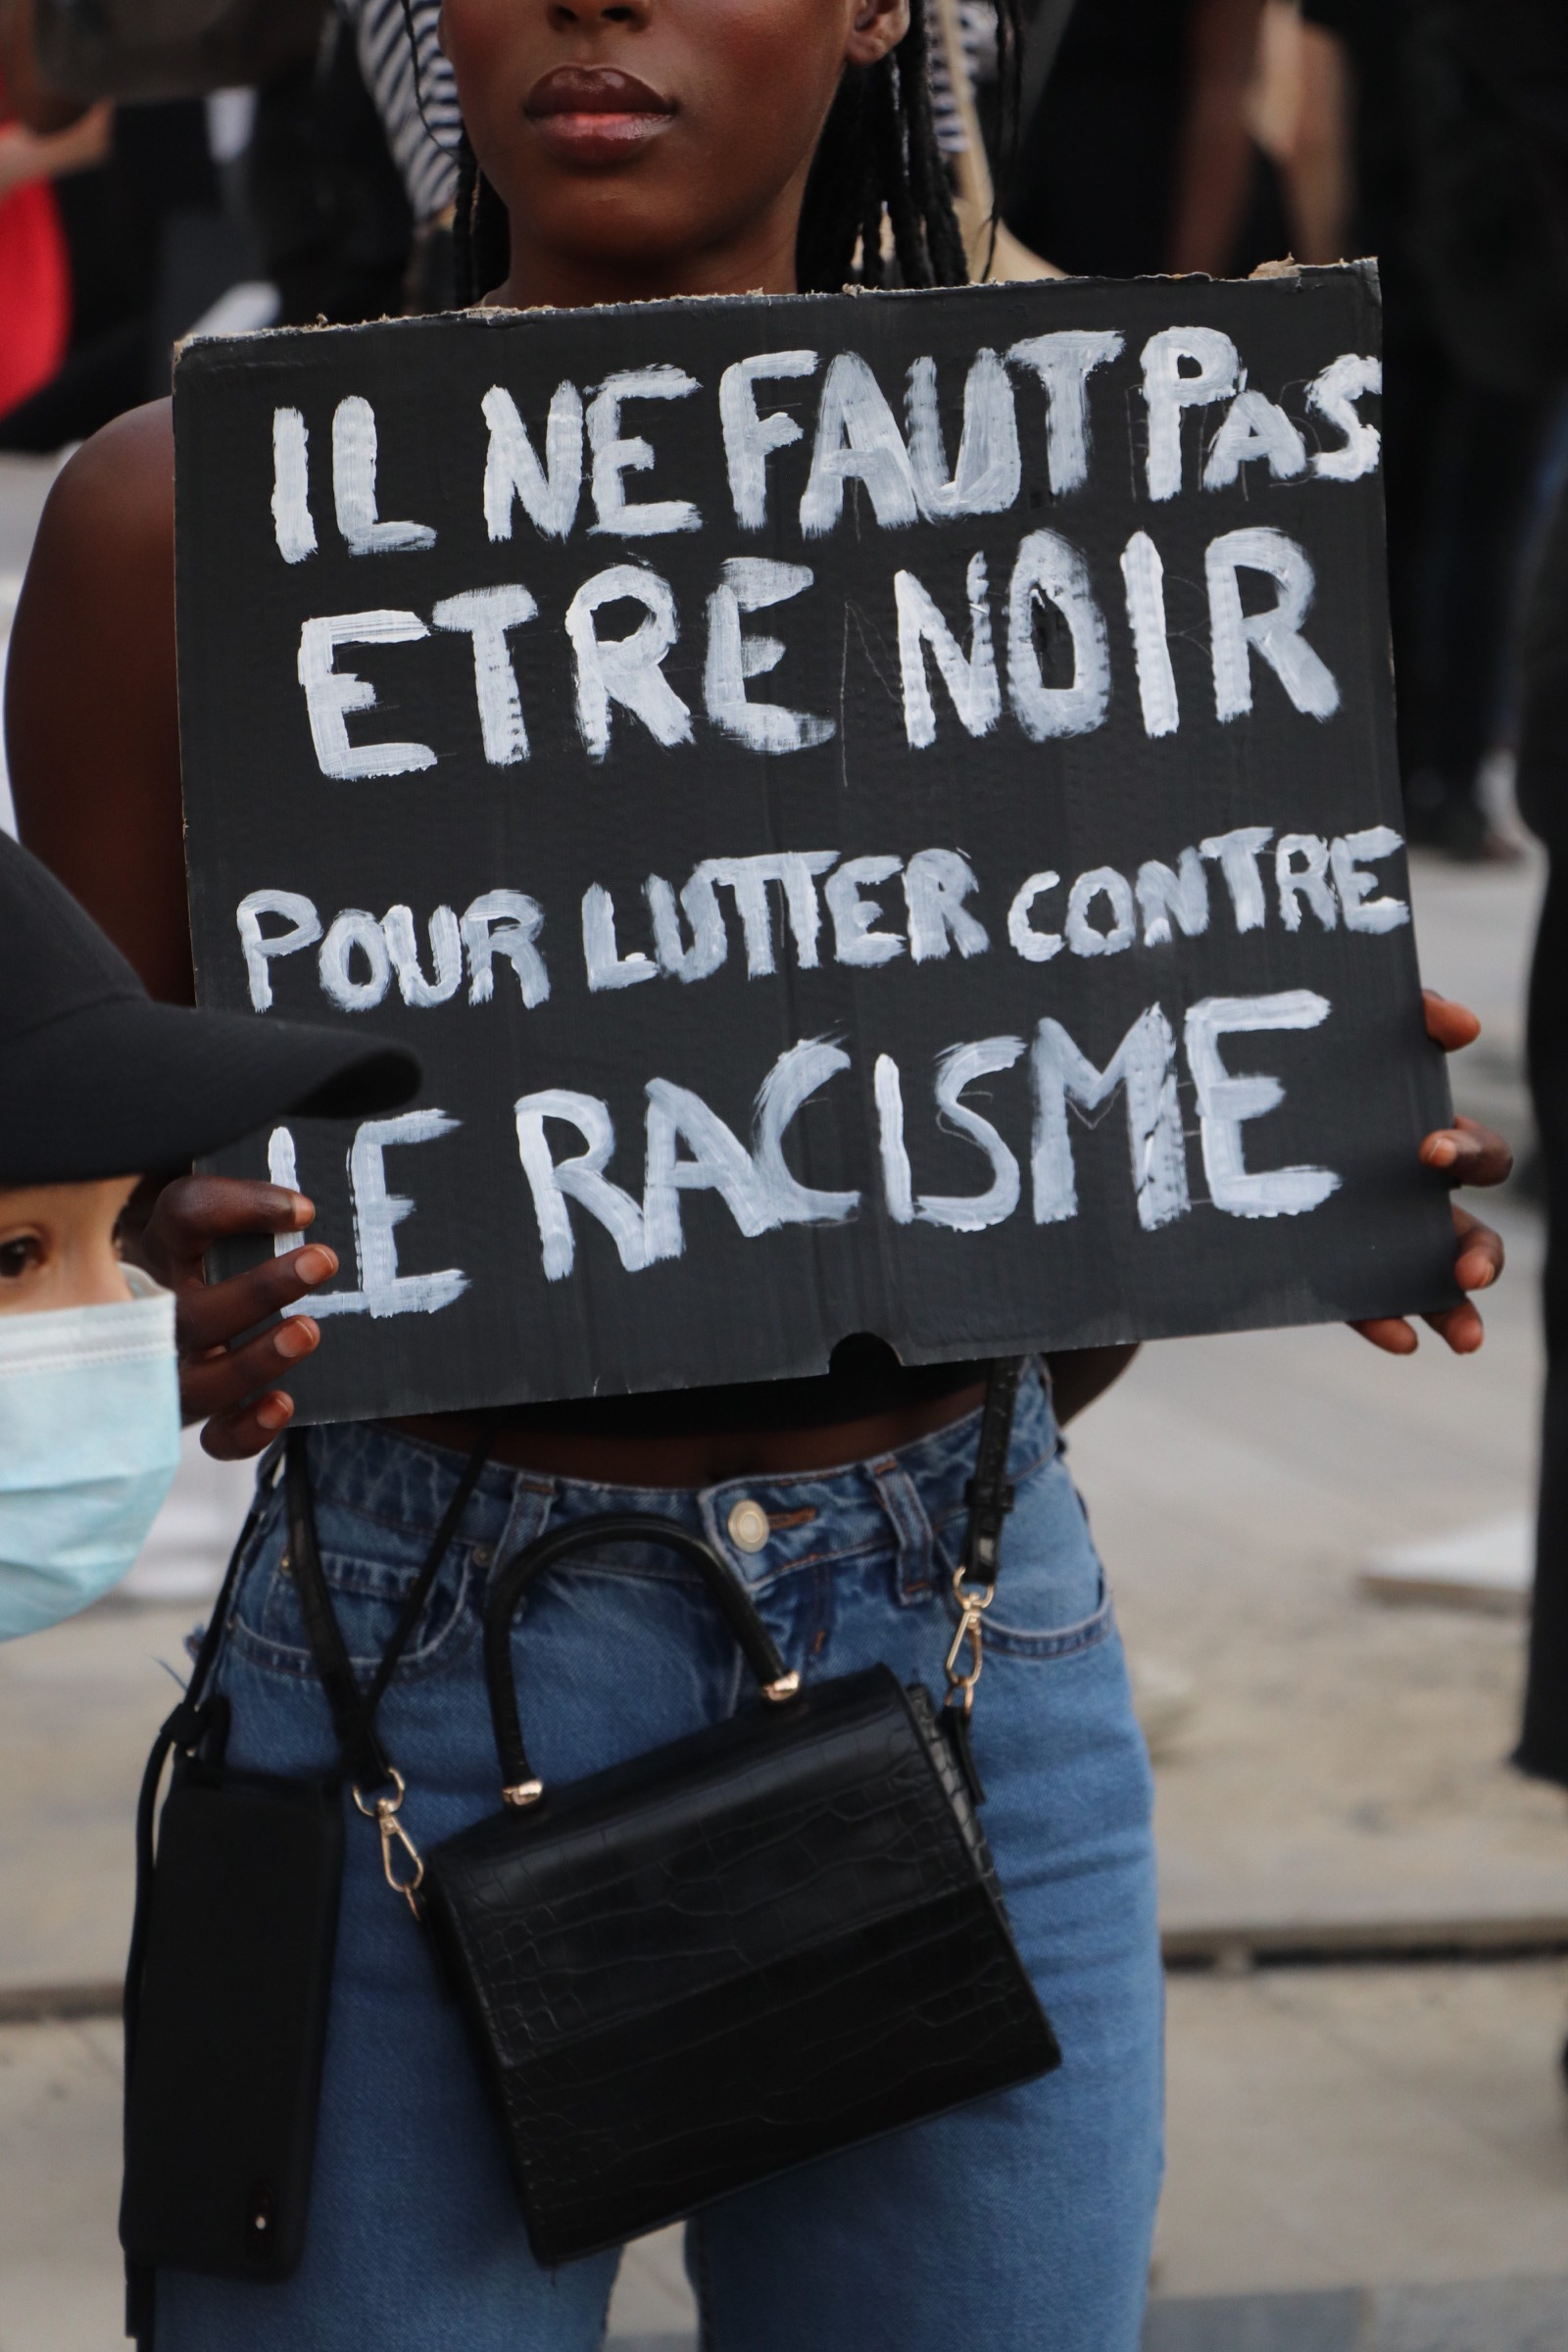 IL NE FAUT PAS
ETRE NOIR
POUR LUTTER CONTRE
LE RACISME